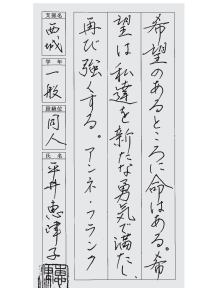 希望のあるところに命はある。希
望は私達を新たな勇気で満たし、
再び強くする。アンネ・フランク
支部名 西城
学年 一般
段級位 同人
氏名 平井恵津子